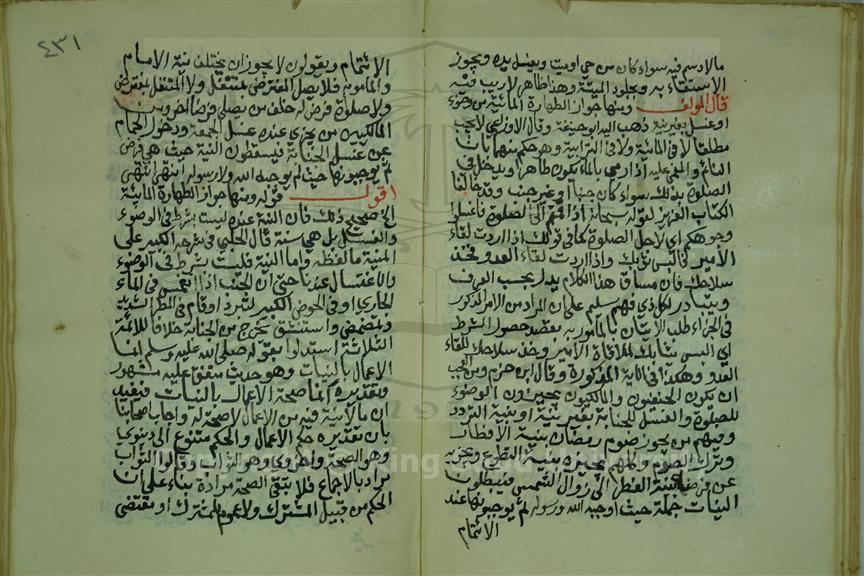 مالا دسم فيه سواء كان من حي او ميت وبغسل يده ويجوز
الاستقاء به وبجلود الميتة وهذا ظاهر لا ريب فيه
قال المولف ومنها جواز الطهارة المائية من وضوء
او غسل بغير نية ذهب اليه ابو حنيفة وقال الاوزاعي لا يجب
مطلقا لا في المائية ولا في الترابية وهو حكم منهما بان
النائم والمغمى عليه اذا رمي بالماء يكون طاهرا ويدخل في
الصلوة بذلك سواء كان جنبا او غير جنب وقد خالفا
الكتاب العزيز لقوله سبحانه اذا قمتم الى الصلوة فاغسلوا
وجوهكم اي لاجل الصلوة كما في قولك اذا اردت لقاء
الامير فالبس ثوبك واذا اردت لقاء العدو فخذ
سلاحك فان مساق هذا الكلام يدل بحسب العرف
ويتبادر لكل ذي فهم سليم على ان المراد من الامر المذكور
في الجزاء طلب الاتيان بالمأمور به بقصد حصول الشرط
اي البس ثيابك لملاقاة الامير وخذ سلاحك للقاء
العدو وهكذا في الآية المذكورة وقال ابن حزم ومن العجب
ان يكون الحنفيون والمالكيون يجيزون الوضوء
للصلوة والغسل للجنابة بغير نية او بنية التبرد
وفيهم من يجوز صوم رمضان بنية الافطار
وترك الصوم وكلهم يجيزه بنية التطوع ويجزيه
عن فرضه بنية الفطر الى زوال الشمس فيبطلون
النيات جملة حيث اوجبه الله ورسوله ثم يوجبونها عند
الائتمام
٤٣١
الائتمام ويقولون لا يجوز ان يختلف نية الامام
والمأموم فلا يصل المفترض بمتنفل ولا المتنفل بمفترض
ولا صلوة فرض له خلف من يصلي فرضا اخر ومن
المالكيين من يجزي عنده غسل الجمعة ودخول الحمام
عن غسل الجنابة فيسقطون النية حيث هي فرض
ثم يوجبونها حيث لم يوجبه الله ولا رسوله انتهى انتهى
اقول قوله ومنها جواز الطهارة المائية
الخ صحيح ذلك فان النية عنده ليست بشرط في الوضوء
والغسل بل هي سنة قال الحلبي في شرحه الكبير على
المنية ما لفظه واما النية فليست بشرط في الوضوء
والاغتسال عندنا حتى ان الجنب اذا انغمس في الماء
الجاري او في الحوض الكبير للتبرد او قام في المطر الشديد
وتمضمض واستنشق يخرج من الجنابة خلافا للائمة
الثلاثة استدلوا بقوله صلى الله عليه وسلم انما
الاعمال بالنيات وهو حديث متفق عليه مشهور
وتقديره انما صحة الاعمال بالنيات فيفيد
ان ما لا نية فيه من الاعمال لا صحة له واجاب اصحابنا
بان تقديره حكم الاعمال والحكم متنوع الى دنيوي
وهو الصحة واخروي وهو الثواب والثواب
مراد بالاجماع فلا يبقى الصحة مرادة بناء على ان
الحكم من قبيل المشترك ولا عموم للمشترك او مقتضى